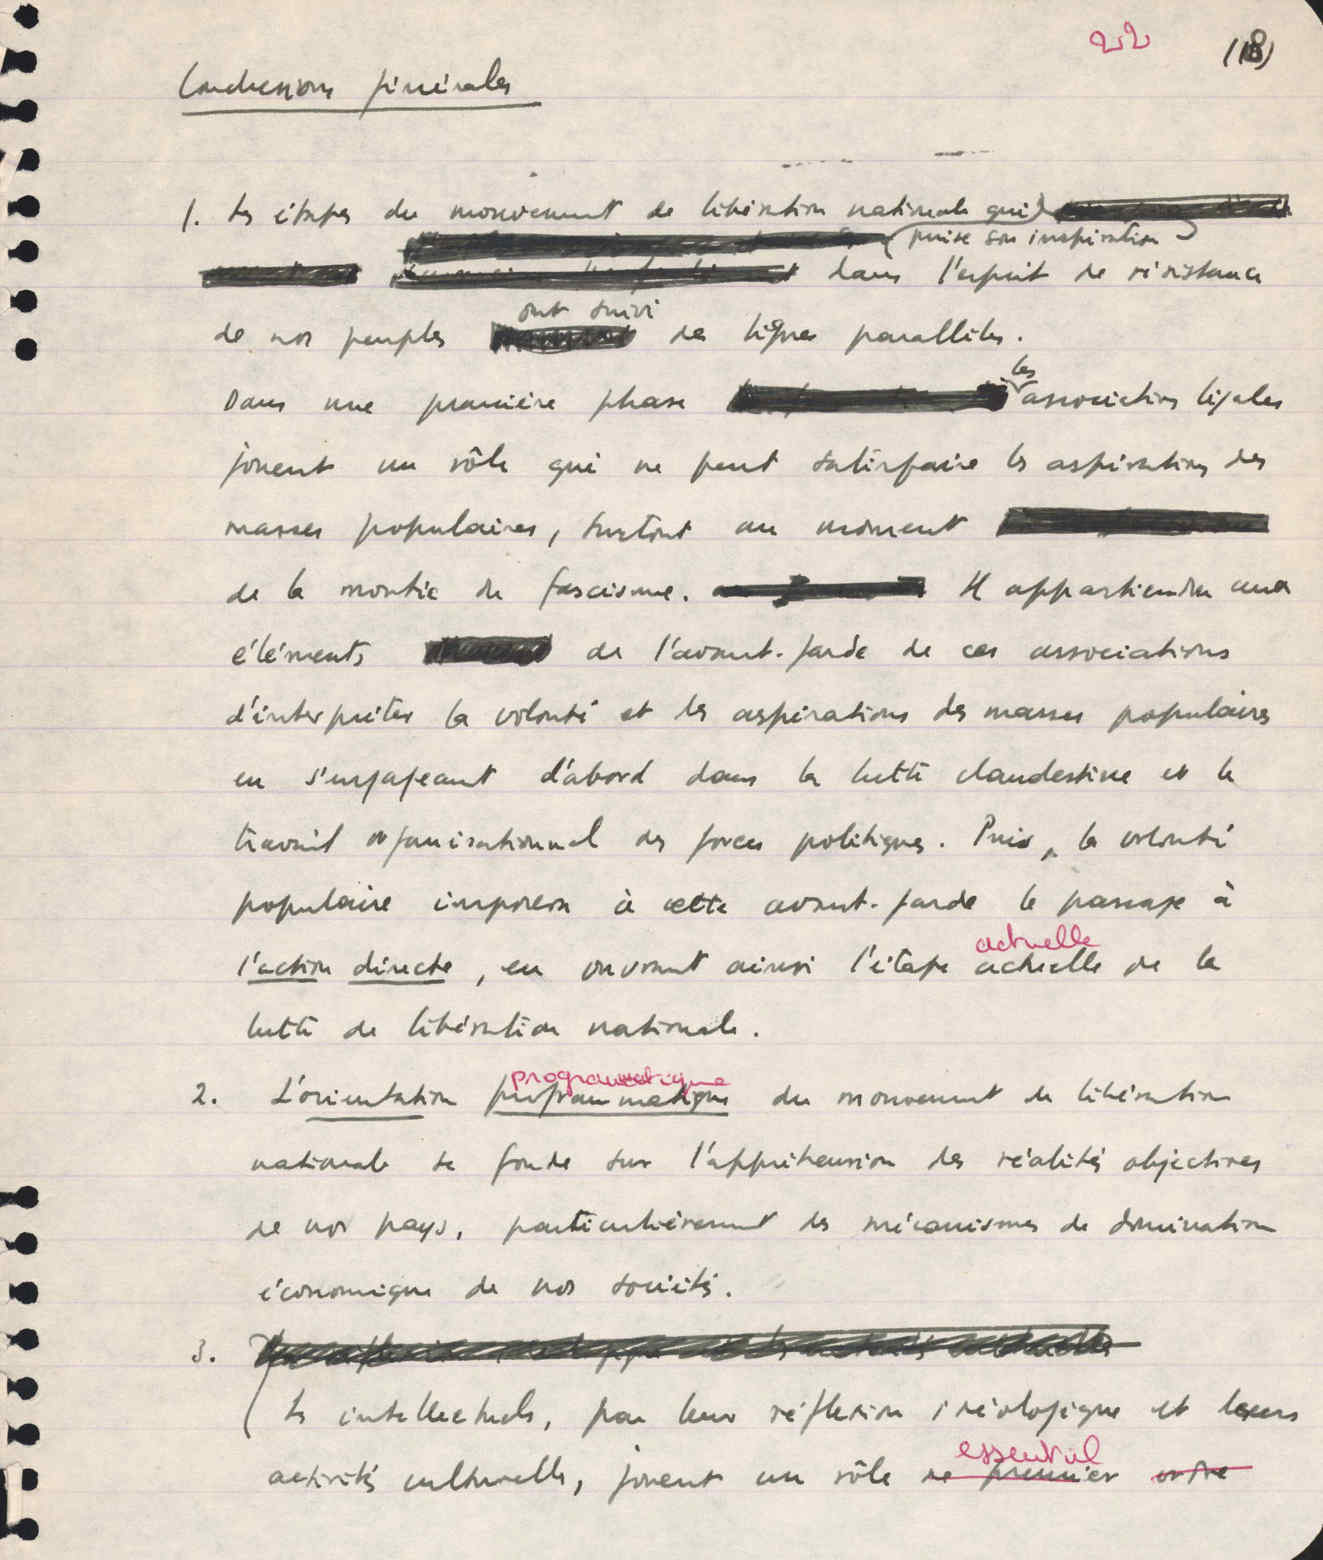 22
(18)
Conclusions générales
1. Les étapes du mouvement de libération nationale qui
puise son inspiration
dans l'esprit de résistance
ont suivi
de nos peuples des lignes parallèles.
les
Dans une première phase associations légales
jouent un rôle qui ne peut satisfaire les aspirations des
masses populaires, surtout au moment
de la montée du fascisme. Il appartiendra aux
éléments de l'avant-garde de ces associations
d'interpréter la volonté et les aspirations des masses populaires
en s'engageant d'abord dans la lutte clandestine et le
travail organisationnel des forces politiques. Puis, la volonté
populaire imposera à cette avant-garde le passage à
actuelle
l'action directe, en ouvrant ainsi l'étape actuelle de la
lutte de libération nationale.
programatique
2. L'orientation programmatique du mouvement de libération
nationale se fonde sur l'appréhension des réalités objectives
de nos pays, particulièrement des mécanismes de domination
économique de nos sociétés.
3.
Les intellectuels, par leur réflexion idéologique et leurs
essentiel
activités culturelles, jouent un rôle de premier ordre